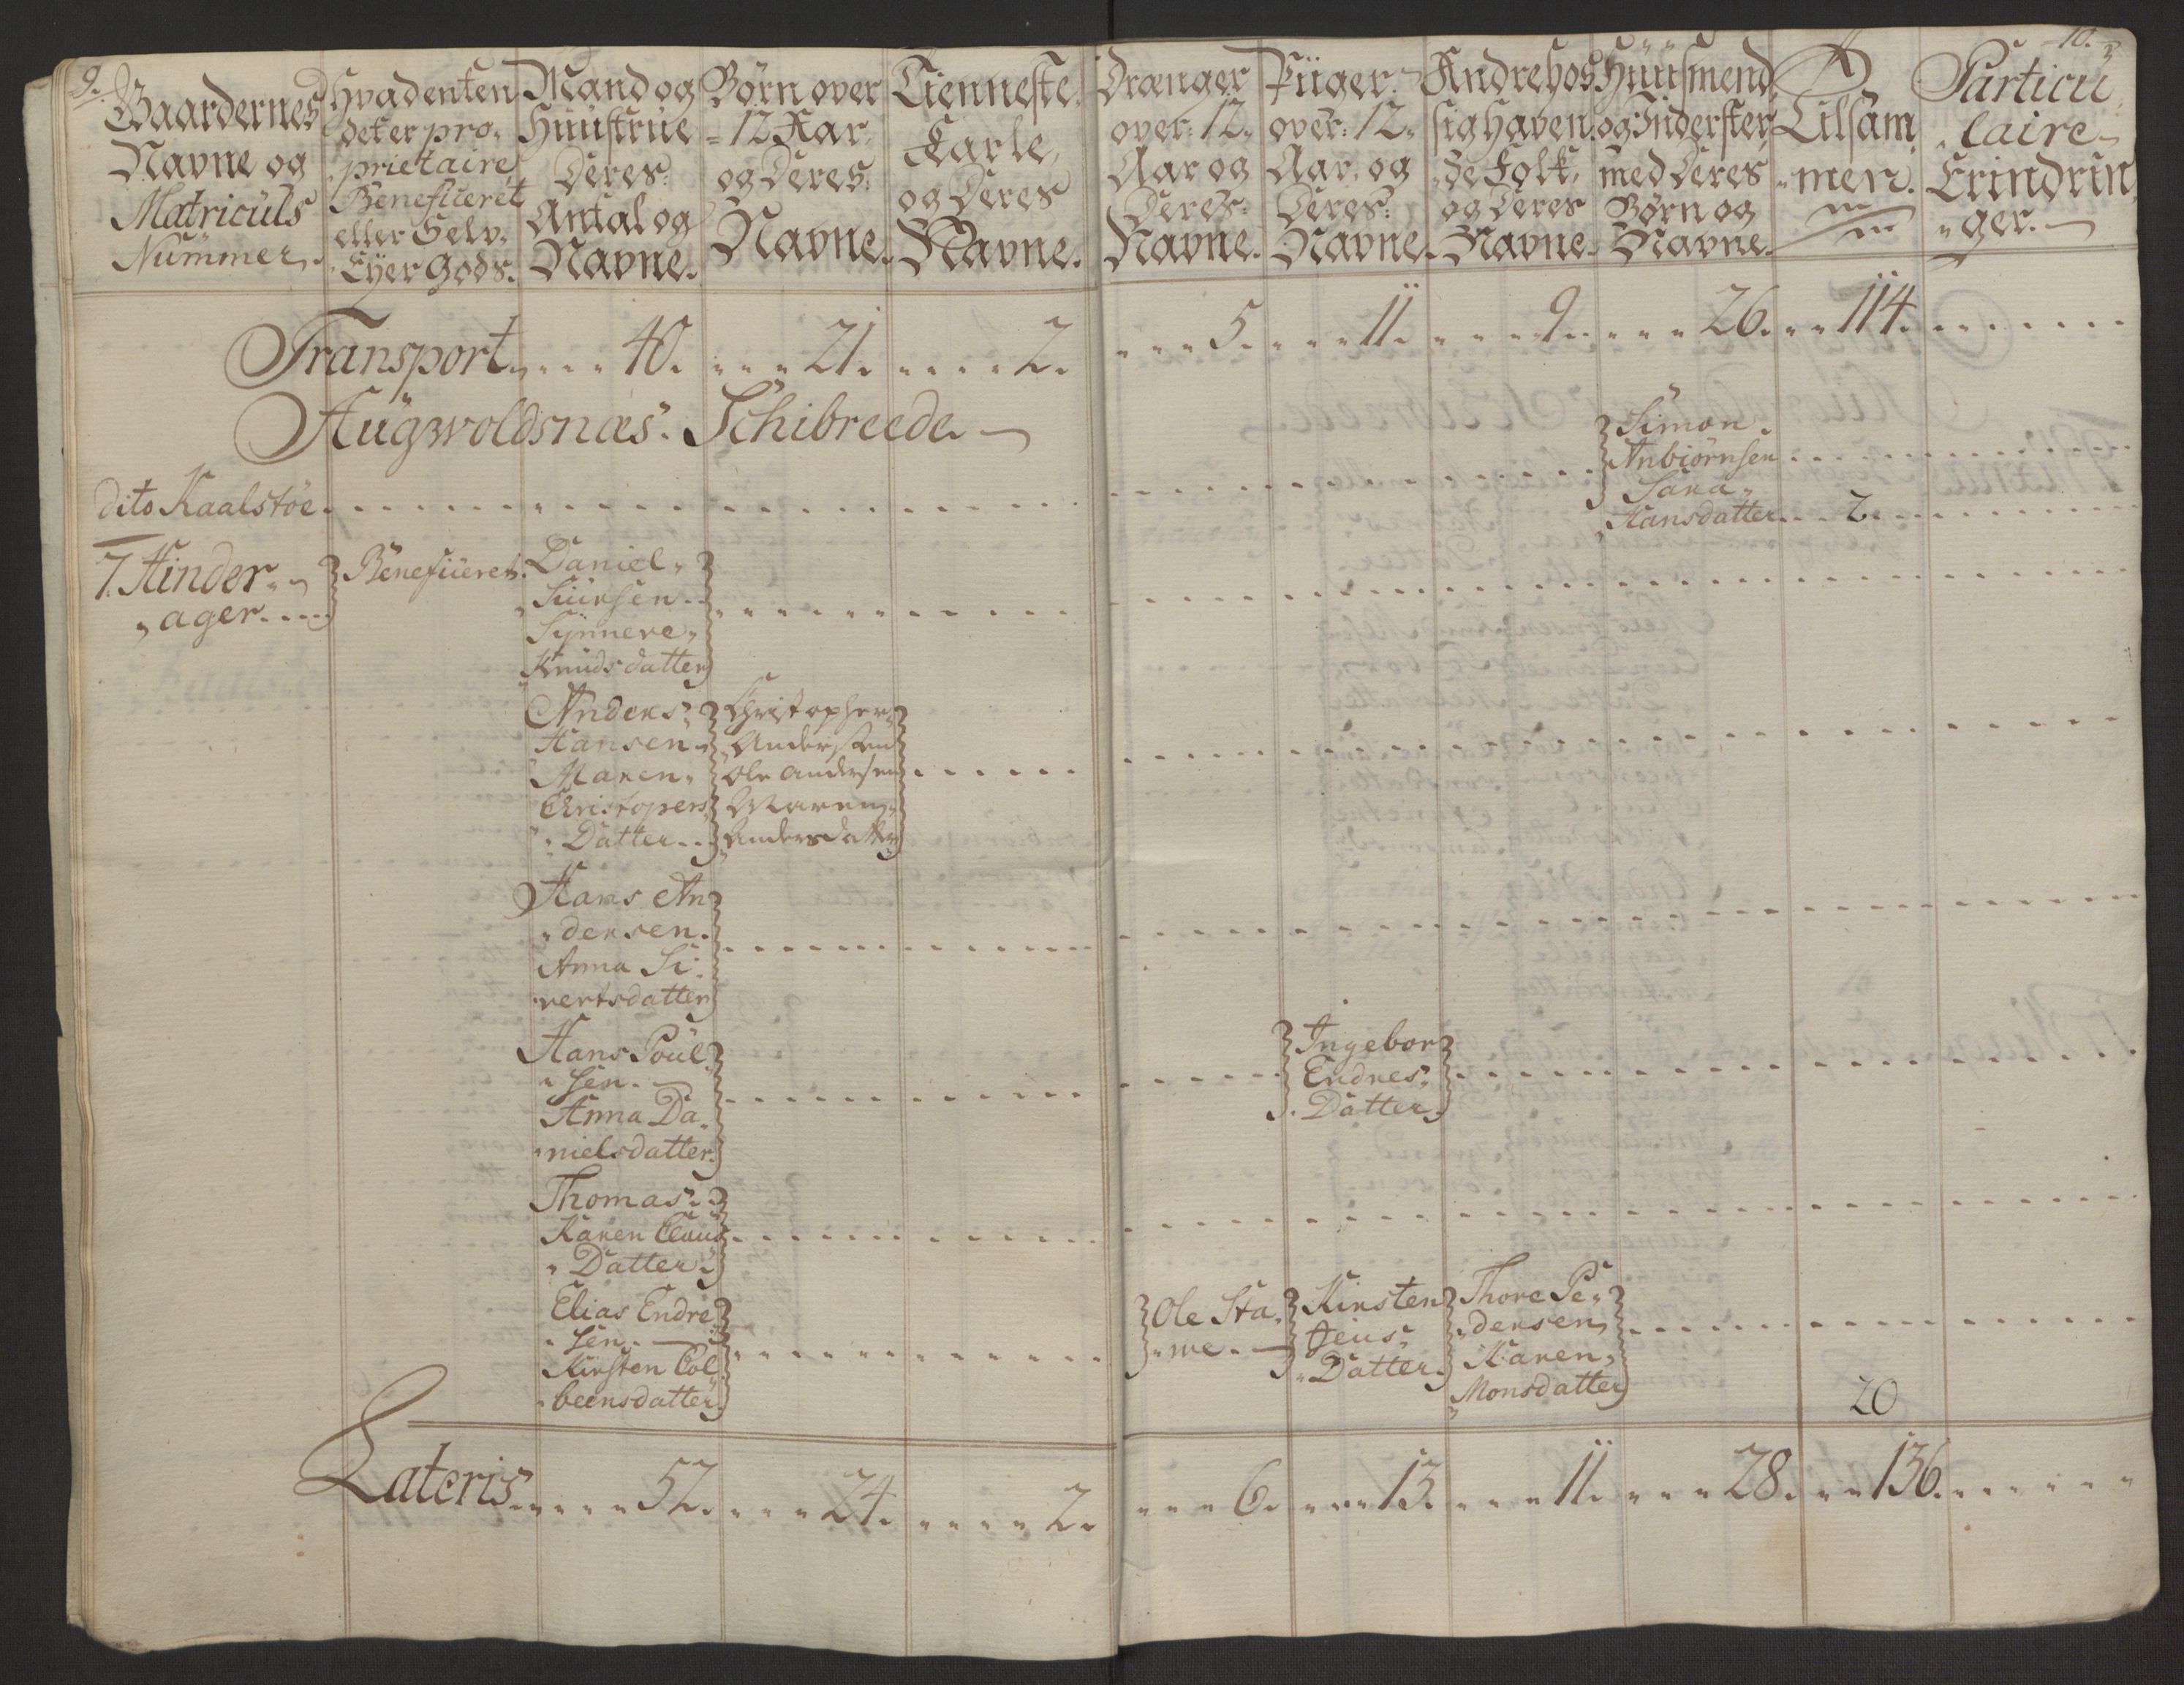 9.
Gaardernes
Navne og
Matriculs
Nummer.
Hvadenten
det er pro-
prietaire
Beneficeret
eller Selv-
Eyer Gods.
Mand og
Huustrue
Deres
Antal og
Navne.
Børn over
12 Aar,
og Deres
Navne.
Tienneste
Karle,
og Deres
Navne.
Drænger
over 12
Aar og
Deres
Navne.
Piiger
over 12
Aar og
Deres
Navne.
Andre hos
sig haven-
de Folk,
og Deres
Navne.
Huusmend
og Inderster
med Deres
Børn og
Navne.
Tilsam
men.
10.
Particu
laire
Erindrin
ger.
Transport 40. 21. 2. 5. 11. 9. 26. 114.
Augwoldsnæs Schibreede
Simon
Anbiørnsen
Sara
dito Kaalstøe
Hansdatter 2.
7. Hinder
ager
Beneficeret.
Daniel
Siursen
Synneve
Knudsdatter
Anders
Hansen
Maren
Christopers
Datter
Christopher
Andersen
Ole Andersen
Maren
Andersdatter
Hans An
dersen.
Anna Si
vertsdatter
Hans Poul
sen.
Anna Da
nielsdatter
Ingebor
Endres
Datter
Thomas
Karen Claus
Datter
Elias Endre
sen.
Kirsten Col
beensdatter
Ole Sta
me
Kirsten
Jens
Datter
Thore Pe
dersen
Karen
Monsdatter
20
Lateris 52. 24. 2. 6. 13. 11. 28. 136.